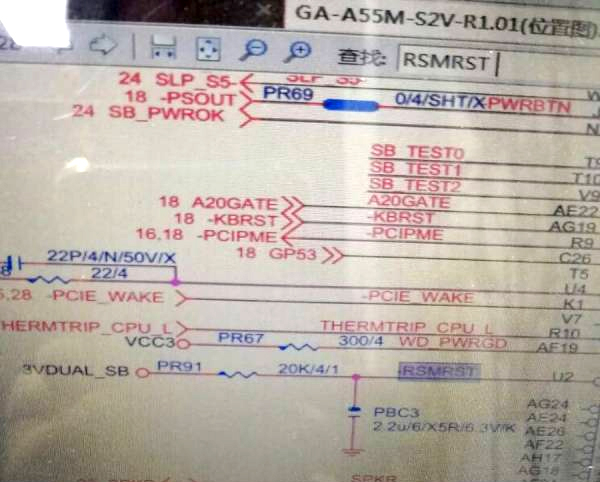 GA-A55M-S2V-R1.01(位置图)
查找: RSMRST
24 SLP_S5- SLP_S5-
18 -PSOUT PR69 0/4/SHT/X -PWRBTN
24 SB_PWROK
SB_TEST0
SB_TEST1 T10
SB_TEST2 V9
18 A20GATE A20GATE AE22
18 -KBRST -KBRST AG19
16,18 -PCIPME -PCIPME R9
18 GP53 C26
22P/4/N/50V/X T5
22/4 U4
,28 -PCIE_WAKE -PCIE_WAKE K1
V7
THERMTRIP_CPU_L THERMTRIP_CPU_L R10
VCC3 PR67 300/4 WD_PWRGD AF19
3VDUAL_SB PR91 20K/4/1 -RSMRST U2
PBC3
2.2u/6/X5R/6.3V/K
AG24
AE24
AE26
AF22
AH17
AG18
SPKR